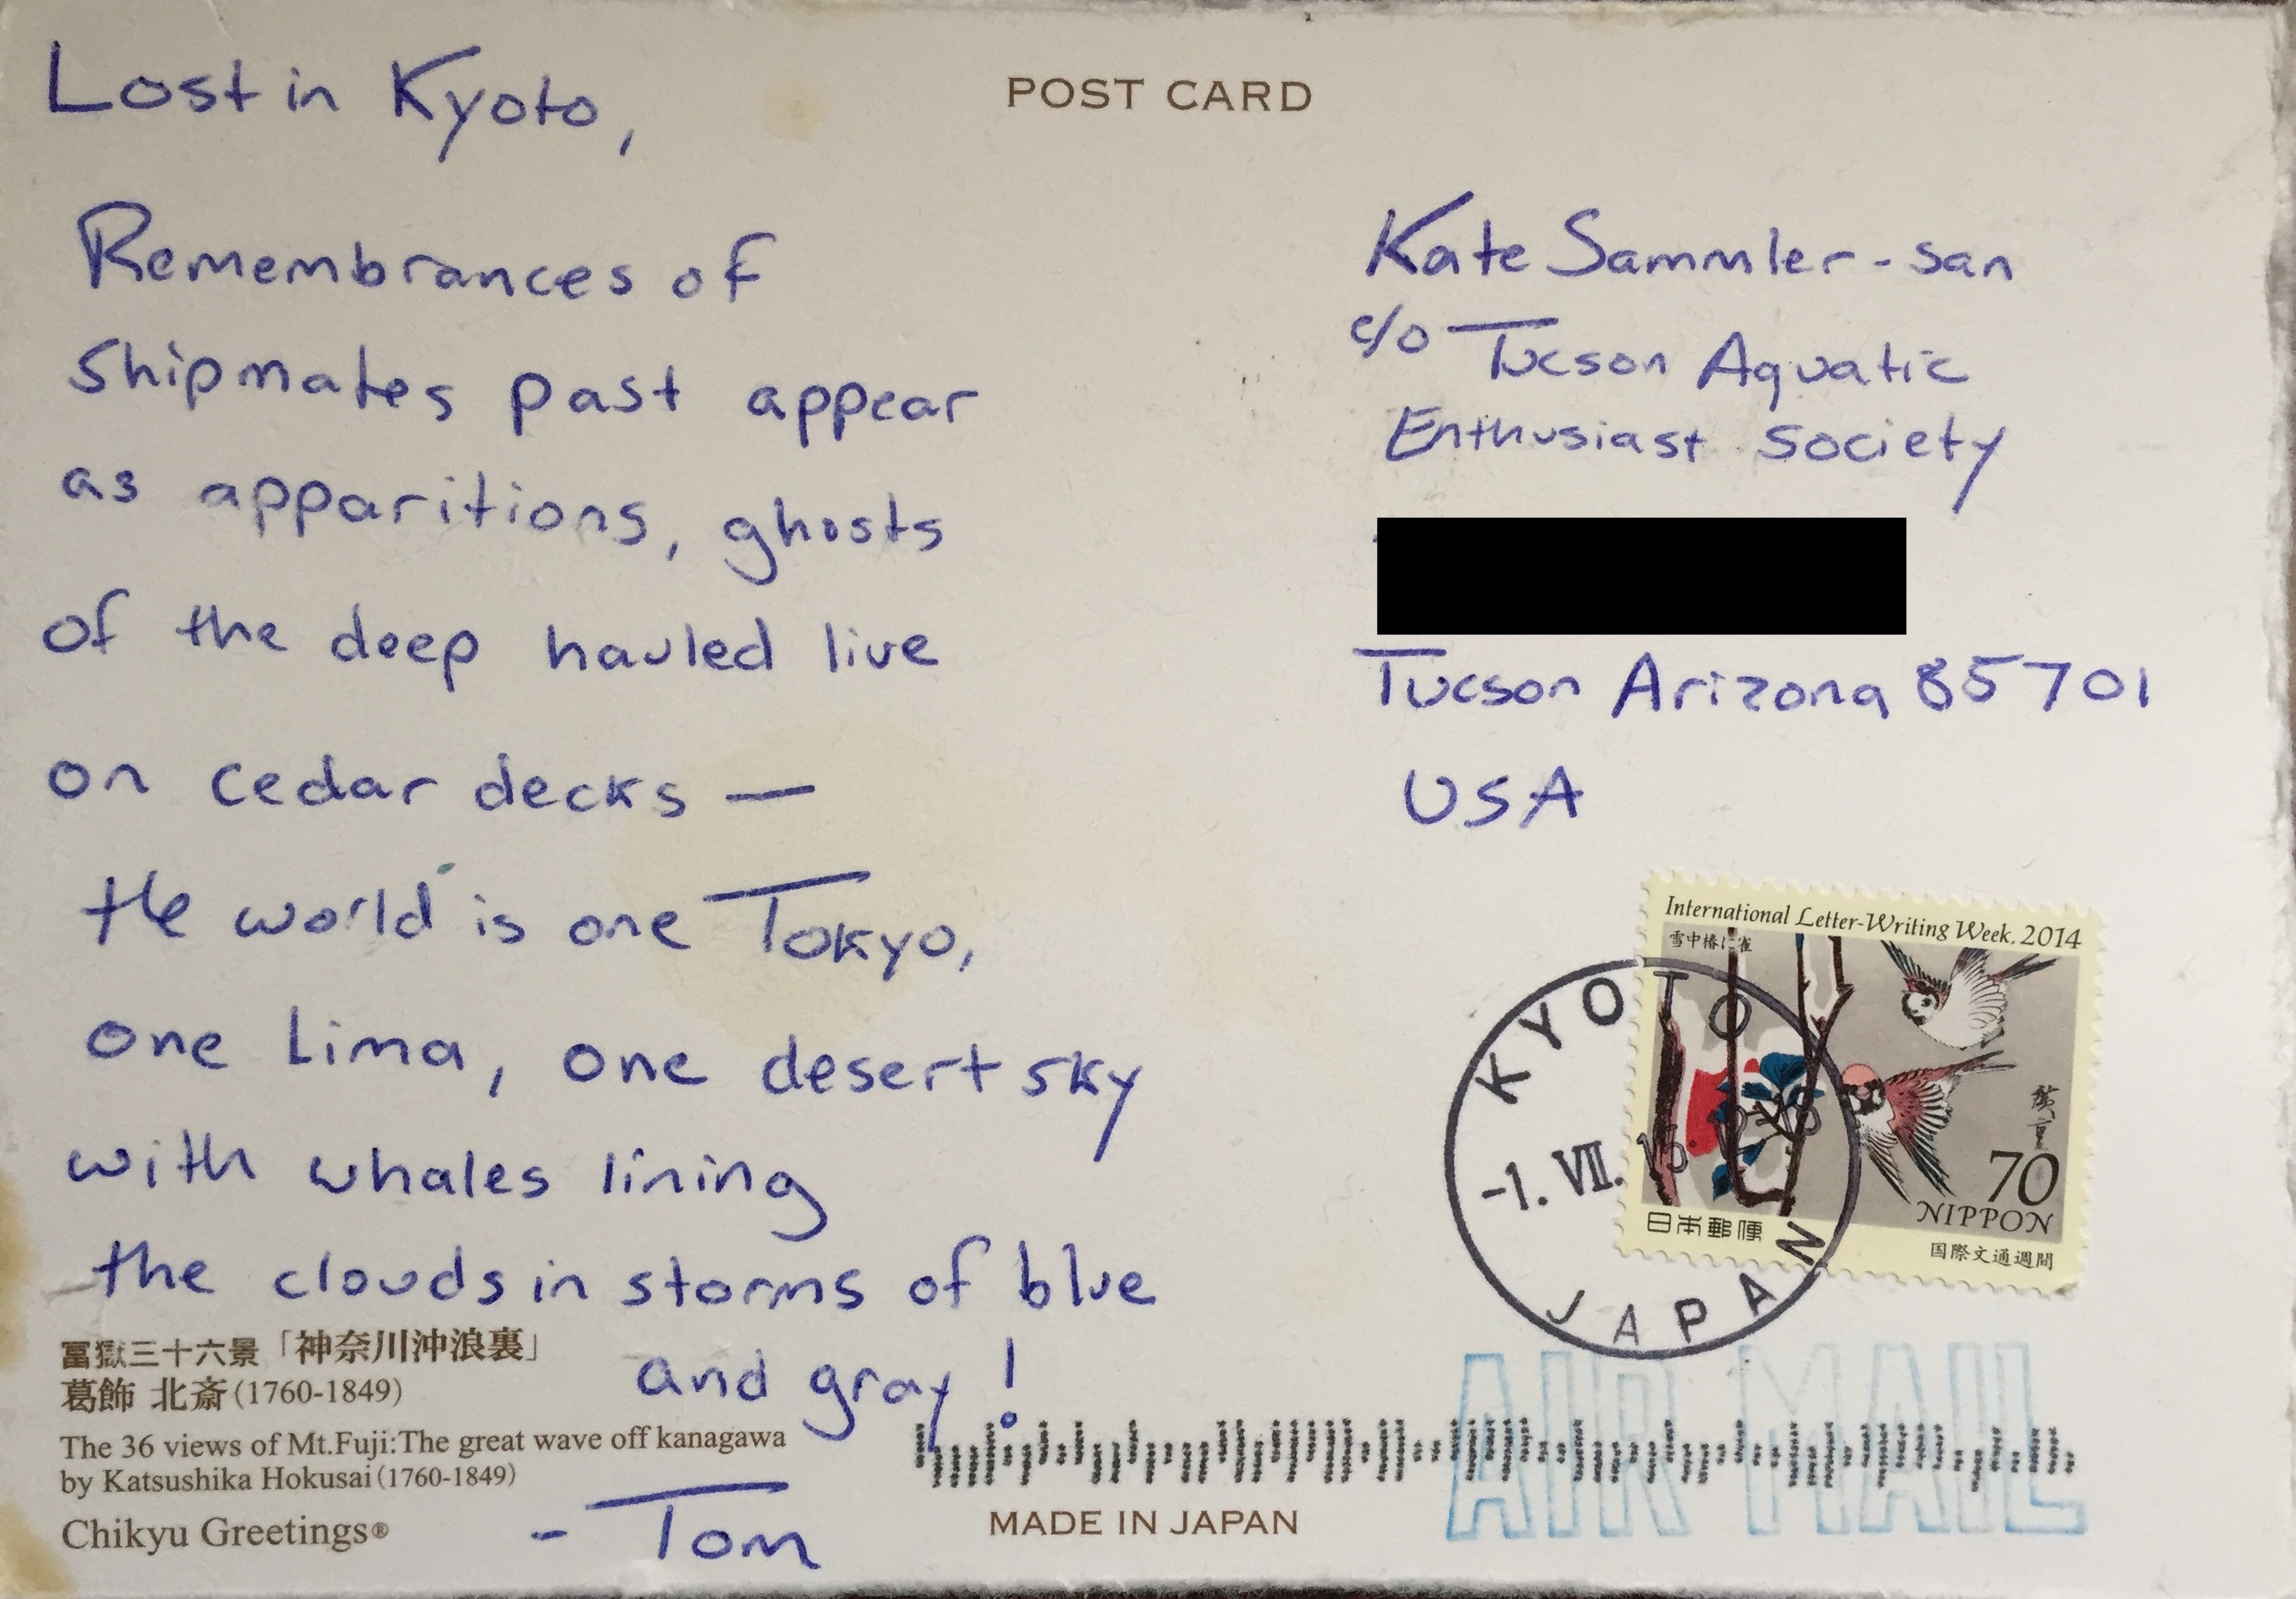 Lost in Kyoto,
Remembrances of
Shipmates past appear
as apparitions, ghosts
of the deep hauled live
on cedar decks —
the world is one Tokyo,
one Lima, one desert sky
with whales lining
the clouds in storms of blue
and gray!
- Tom
冨嶽三十六景「神奈川沖浪裏」
葛飾 北斎(1760-1849)
The 36 views of Mt.Fuji:The great wave off kanagawa
by Katsushika Hokusai(1760-1849)
Chikyu Greetings®
POST CARD
Kate Sammler-san
c/o Tucson Aquatic
Enthusiast Society
Tucson Arizona 85701
USA
International Letter-Writing Week, 2014
雪中椿に雀
70
NIPPON
日本郵便
国際文通週間
KYOTO
-1. VII. 15
JAPAN
AIR MAIL
MADE IN JAPAN